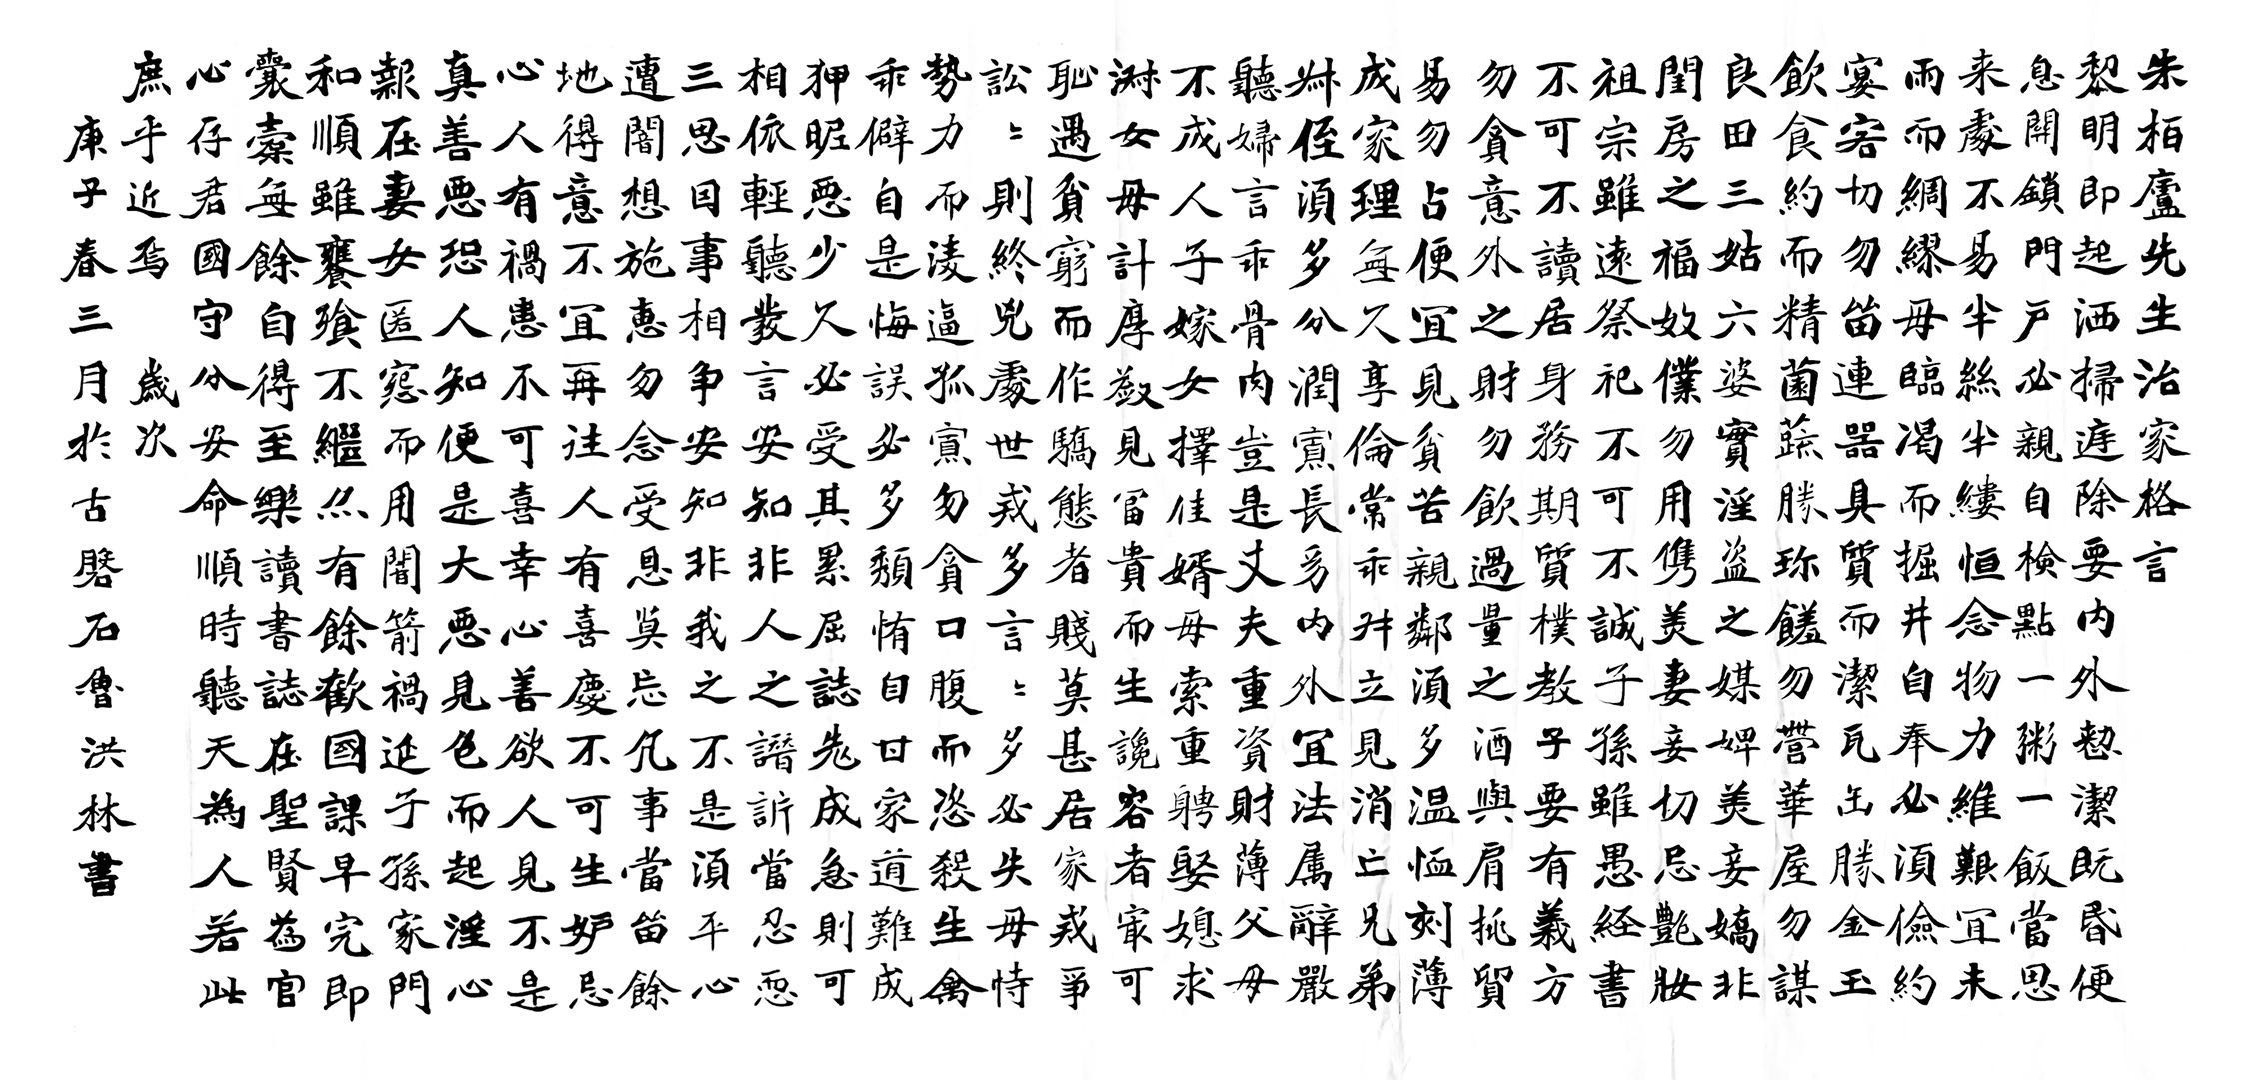 朱栢廬先生治家格言
黎明即起洒掃庭除要内外整潔既昏便
息開鎖門户必親自檢點一粥一飯當思
来處不易半絲半縷恒念物力維艱宜未
雨而綢繆毋臨渴而掘井自奉必須儉約
宴客切勿留連器具質而潔瓦缶勝金玉
飲食約而精園蔬勝珍饈勿營華屋勿謀
良田三姑六婆實淫盗之媒婢美妾嬌非
閨房之福奴僕勿用俊美妻妾切忌艷妝
祖宗雖遠祭祀不可不誠子孫雖愚経書
不可不讀居身務期質樸教子要有義方
勿貪意外之財勿飲過量之酒與肩挑貿
易勿占便宜見貧苦親鄰須多温恤刻薄
成家理無久享倫常乖舛立見消亡兄弟
叔侄須多分潤寡長幼内外宜法属辭嚴
聽婦言乖骨肉豈是丈夫重資財薄父母
不成人子嫁女擇佳婿毋索重聘娶媳求
淑女毋計厚奩見富貴而生諂容者最可
恥遇貧窮而作驕態者賤莫甚居家戒爭
訟〻則終兇處世戒多言〻多必失毋恃
勢力而凌逼孤寡勿貪口腹而恣殺生禽
乖僻自是悔誤必多頹惰自甘家道難成
狎昵惡少久必受其累屈誌老成急則可
相依輕聽發言安知非人之譖訴當忍恧
三思因事相爭安知非我之不是須平心
遭闇想施惠勿念受恩莫忘凡事當留餘
地得意不宜再往人有喜慶不可生妒忌
心人有禍患不可喜幸心善欲人見不是
真善惡恐人知便是大惡見色而起淫心
報在妻女匿怨而用闇箭禍延子孫家門
和順雖饔飧不繼亦有餘歡國課早完即
囊橐無餘自得至樂讀書誌在聖賢為官
心存君國守分安命順時聽天為人若此
庶乎近焉 歲次
庚子春三月於古磬石魯洪林書